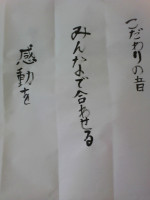 こだわりの音
みんなで合わせる
感動を